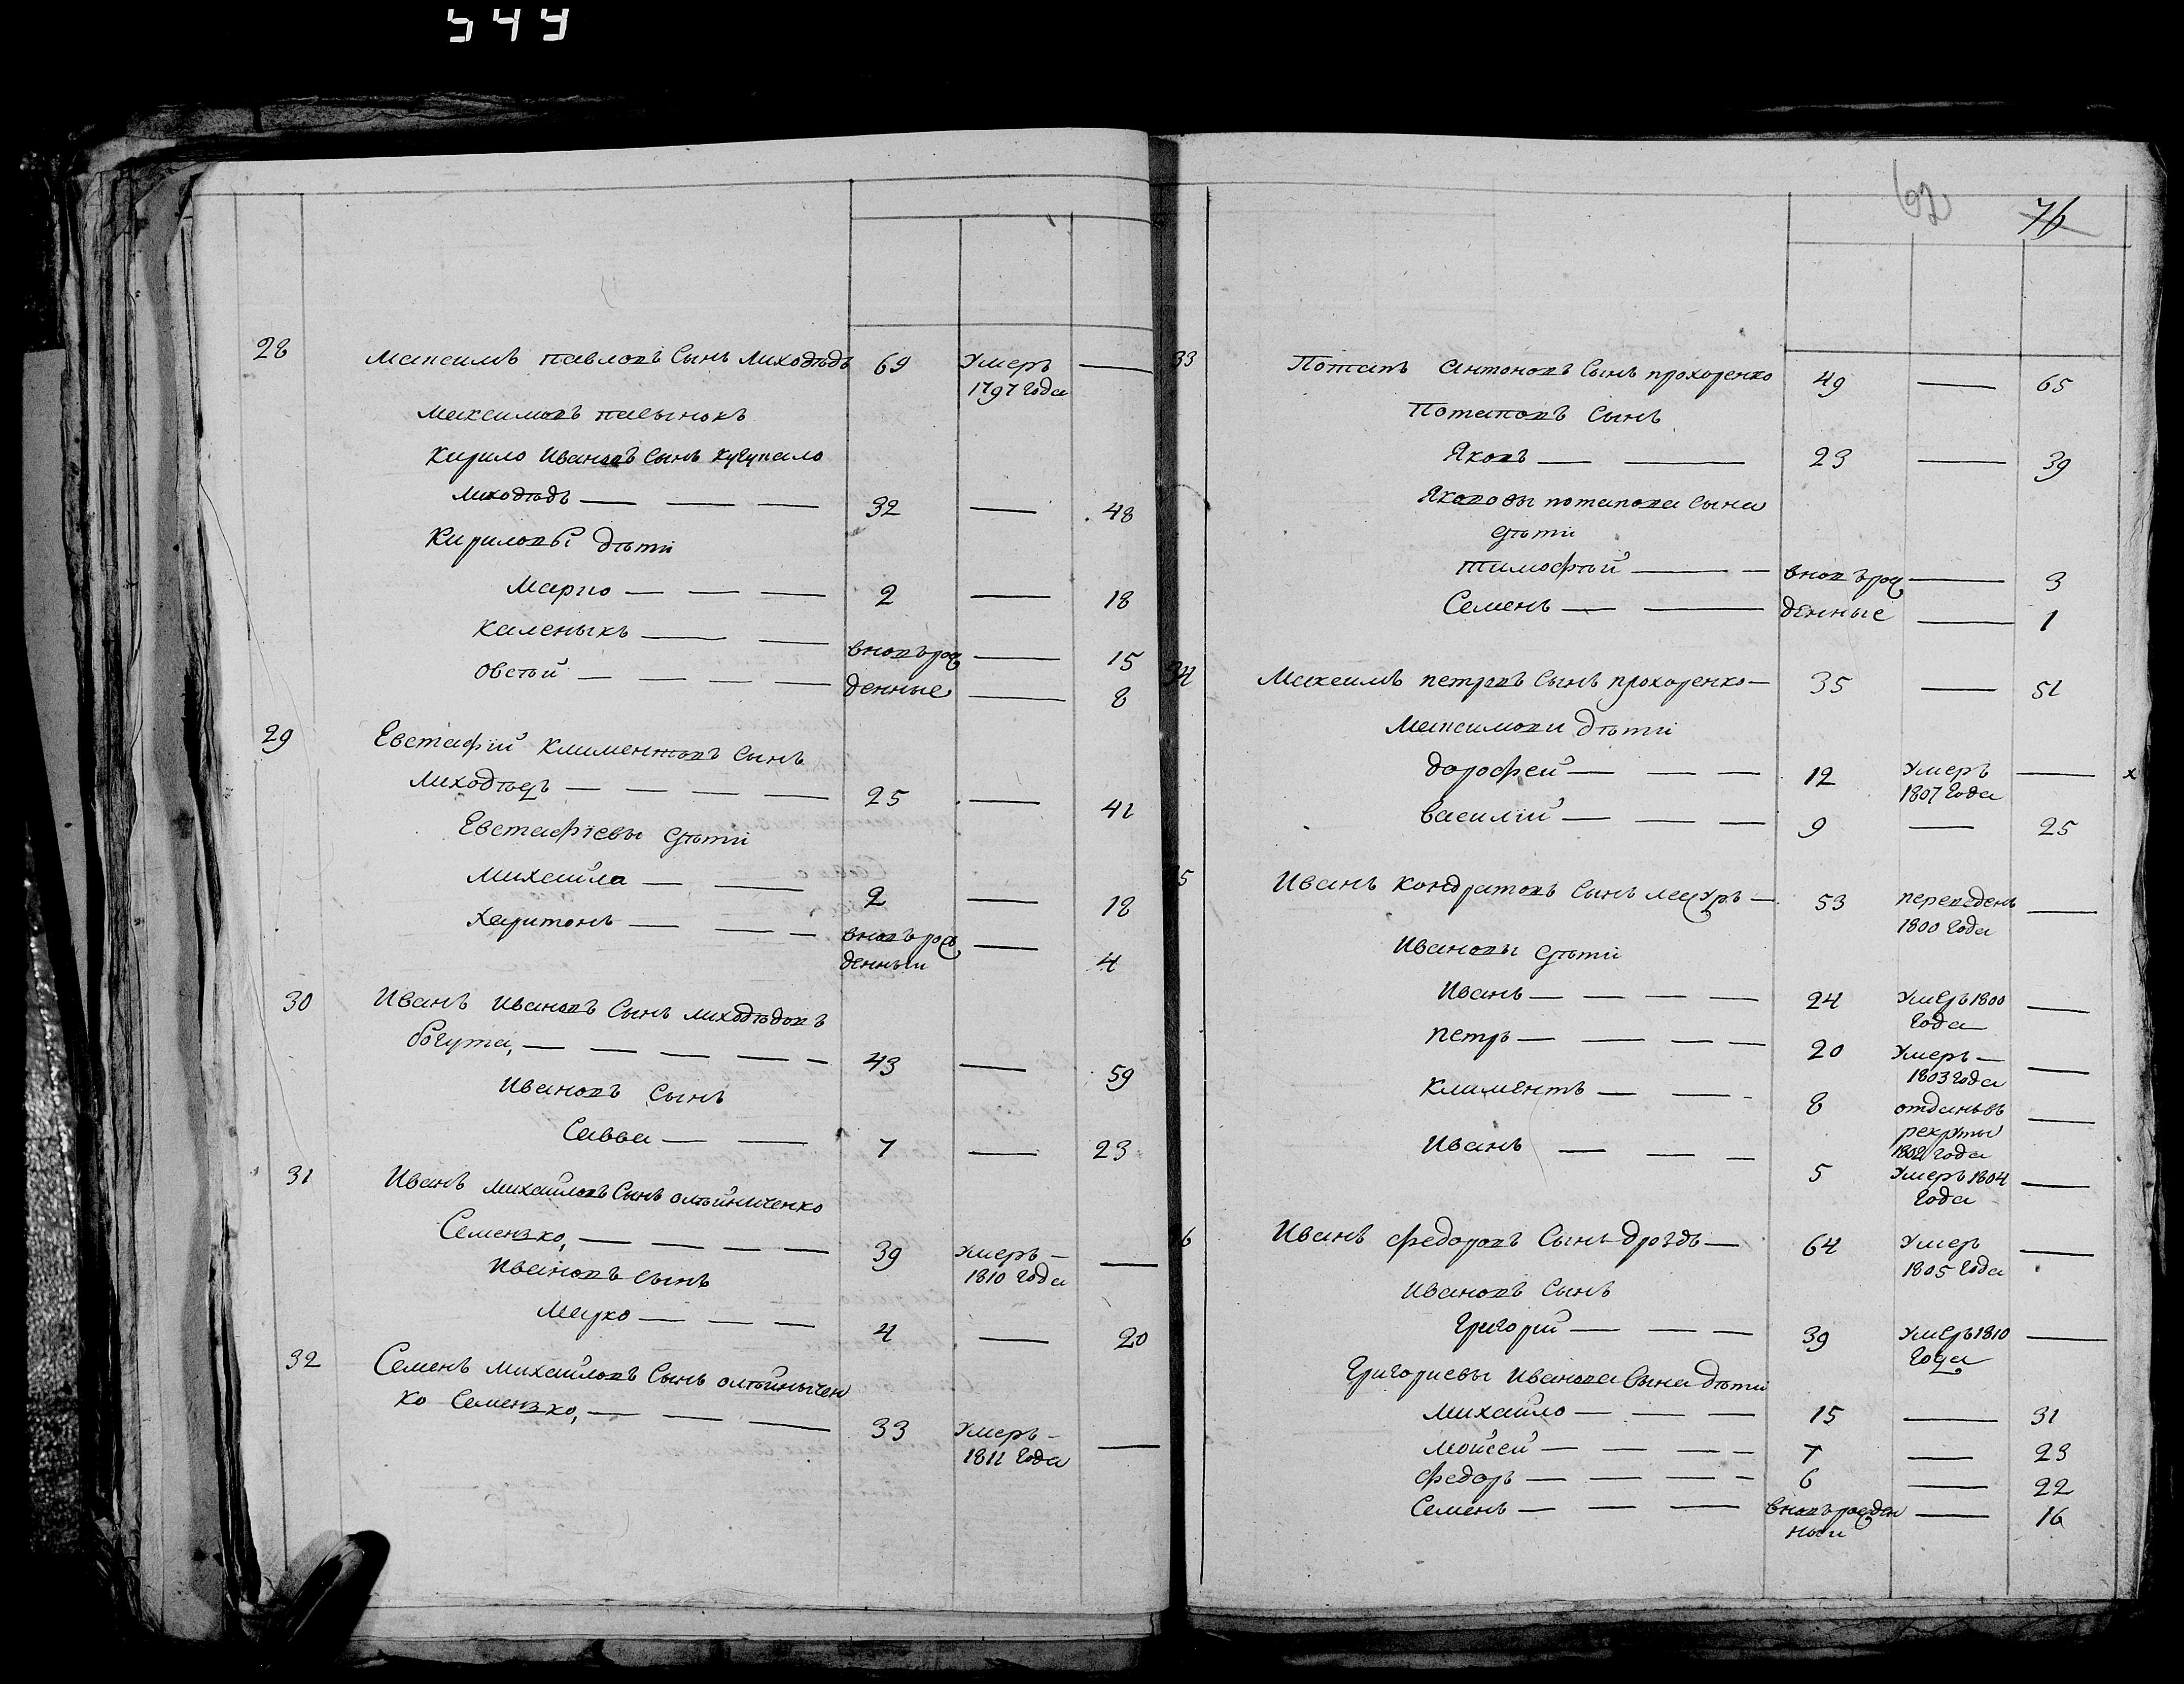 544
28 Максимъ павловъ Сынъ Лиходѣдъ 69 Умеръ —
1797 Года
Максимовъ пасынокъ
Кирило Ивановъ Сынъ
Лиходѣдъ — — — 32 — 48
Кириловы дѣти
Марко — — — 2 — 18
Каленыкъ — — вновърож — 15
Овсѣй — — — — денные — 8
29 Евстафій Климентовъ Сынъ
Лиходѣдъ — — — — 25 — 41
Евстафіевы дѣти
Михайла — — 2 — 18
Харитонъ — — — вновърож —
денныи 4
30 Иванъ Ивановъ Сынъ лиходѣдовъ
богута, — — — — — 43 — 59
Ивановъ Сынъ
Савва — — 7 — 23
31 Иванъ Михайловъ Сынъ олѣйниченко
Семенко, — — — — 39 Умеръ — —
1810 Года
Ивановъ сынъ
Марко — — — 4 — 20
32 Семенъ Михайловъ Сынъ олѣйничен
ко Семенко, — — — 33 Умеръ — —
1811 Года
62
76
33 Потапъ Антоновъ Сынъ прохоренко 49 — 65
Потаповъ Сынъ
Яковъ — — 23 — 39
Яковovы потапова Сына
дѣти
Тимофѣй — — вновърож — 3
Семенъ — — денные — 1
34 Максимъ петровъ Сынъ прохоренко — 35 — 51
Максимови дѣти
дорофей — — — 12 Умеръ — х
1807 Года
василій — — — 9 — 25
5 Иванъ Кондратовъ Сынъ — 53 переведенъ —
1800 Года
Ивановы дѣти
Иванъ — — — — 24 Умеръ 1800 —
Года
петръ — — — — 20 Умеръ — —
1803 года
Климентъ — — - 8 отданъвъ —
рекруты
1802 года
Иванъ — — — 5 Умеръ 1804 —
Года
6 Иванъ федоровъ Сынъ дроздъ — 64 Умер —
1805 Года
Ивановъ Сынъ
Григорій — — — 39 Умеръ 1810 —
Года
Григориевы Иванова Сына дѣти
Михайло — — — 15 — 31
Мойсей — — — — 7 — 23
федоръ — — — — 6 — 22
Семенъ — — — вновърожден — 16
ныи